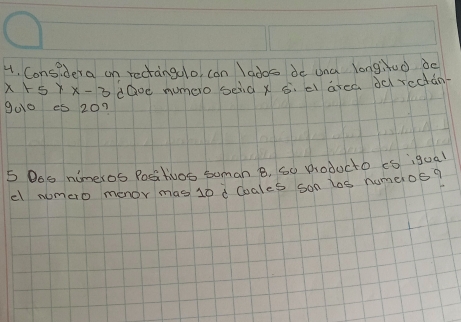 4. Considera un rectángulo, con lados de una longitud de
x + 5 y x - 3 ¿Que numero seria x si el área del rectán-
gulo es 20?
5 Dos números Positivos suman 8, so producto es igual
el numero menor mas 10 ¿ Cuales son los numeros?